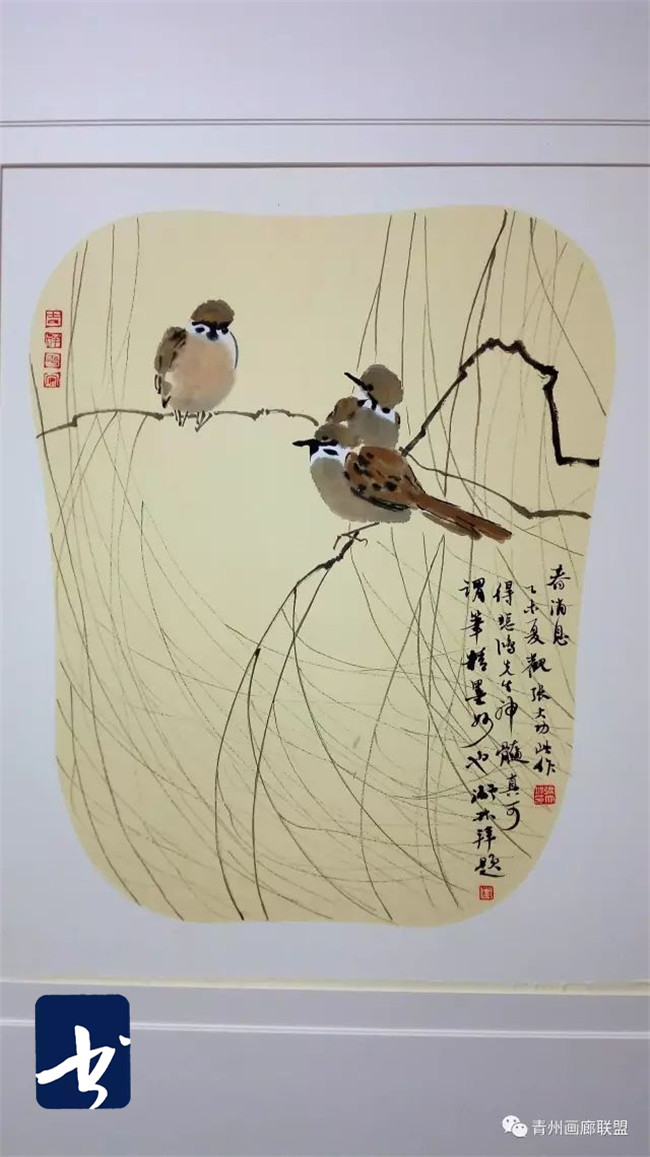 春消息
乙未夏觀張大功此作
得悲鴻先生神髓真可
謂筆精墨妙也拜題
书
青州画廊联盟